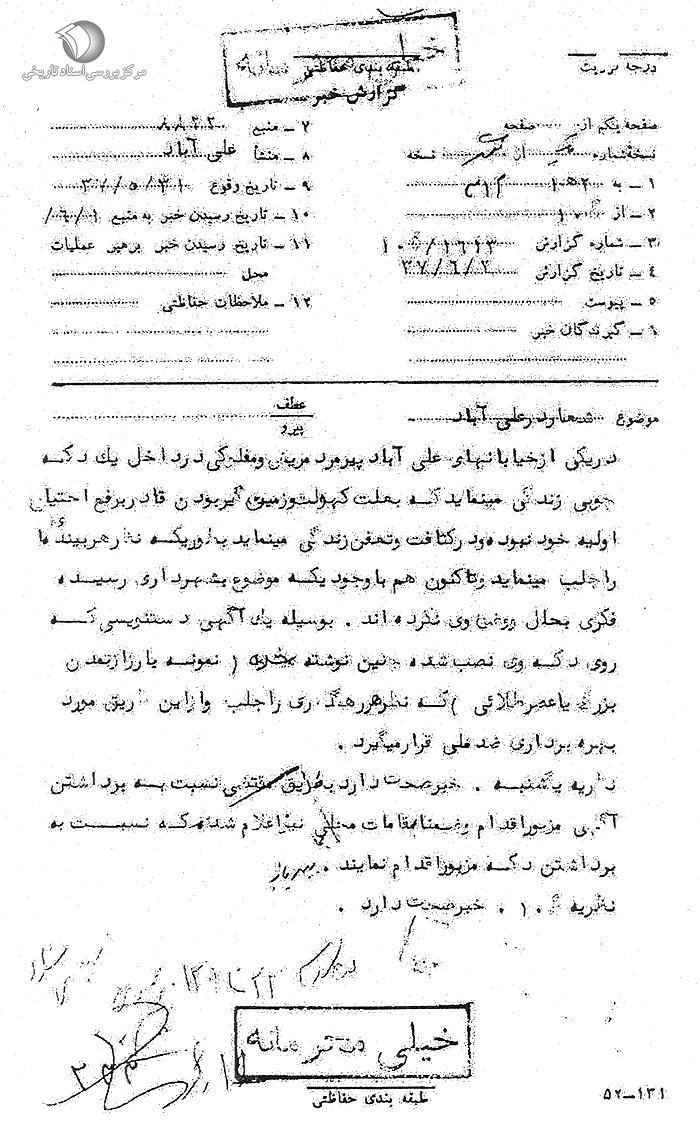 مرکز بررسی اسناد تاریخی
خیلی محرمانه
طبقه بندی حفاظتی
گزارش خبر
درجه فوریت
صفحه یکم از صفحه
نسخه شماره از نسخه
۱ – به
۲ – از
۳ – شماره گزارش
۴ – تاریخ گزارش ۳۷/۶/۲
۵ – پیوست
۶ – گیرندگان خبر
۷ – منبع ۸۸۳۳
۸ – منشأ علی آباد
۹ – تاریخ وقوع ۳۷/۵/۳۱
۱۰ – تاریخ رسیدن خبر به منبع ۶/۱/
۱۱ – تاریخ رسیدن خبر برهبر عملیات
محل
۱۲ – ملاحظات حفاظتی
موضوع شعار در علی آباد
عطف
پیرو
در یکی از خیابانهای علی آباد پیرمرد مریض و مفلوکی در داخل یک دکه
چوبی زندگی مینماید که بعلت کهولت و زمین گیر بودن قادر برفع احتیاج
اولیه خود نبوده و در کثافت و تعفن زندگی مینماید بطوریکه نظر هر بیننده ای
را جلب مینماید و تاکنون هم با وجودیکه موضوع بشهرداری رسیده
فکری بحال روشن وی نکرده اند . بوسیله یک آگهی دستنویسی که
روی دکه وی نصب شده چنین نوشته ( نمونه بارز از تمدن
بزرگ یا عصر طلائی ) که نظر هر رهگذری را جلب و از این طریق مورد
بهره برداری ضد ملی قرار میگیرد .
نظریه یکشنبه . خبر صحت دارد بطریق مقتضی نسبت به برداشتن
آگهی مزبور اقدام و ضمنا بمقامات محلی نیز اعلام شده که نسبت به
برداشتن دکه مزبور اقدام نمایند .
نظریه ۱۰ . خبر صحت دارد .
خیلی محرمانه
طبقه بندی حفاظتی
۵۲–۱۳۱